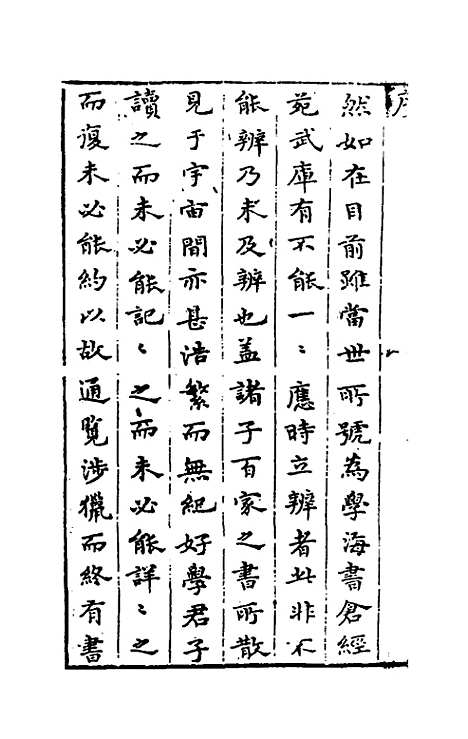 序
然如在目前雖當世所號為學海書倉經
苑武庫有不能一〻應時立辨者此非不
能辨乃未及辨也蓋諸子百家之書所散
見于宇宙間亦甚浩繁而無紀好學君子
讀之而未必能記〻之而未必能詳〻之
而復未必能約以故通覧涉獵而終有書